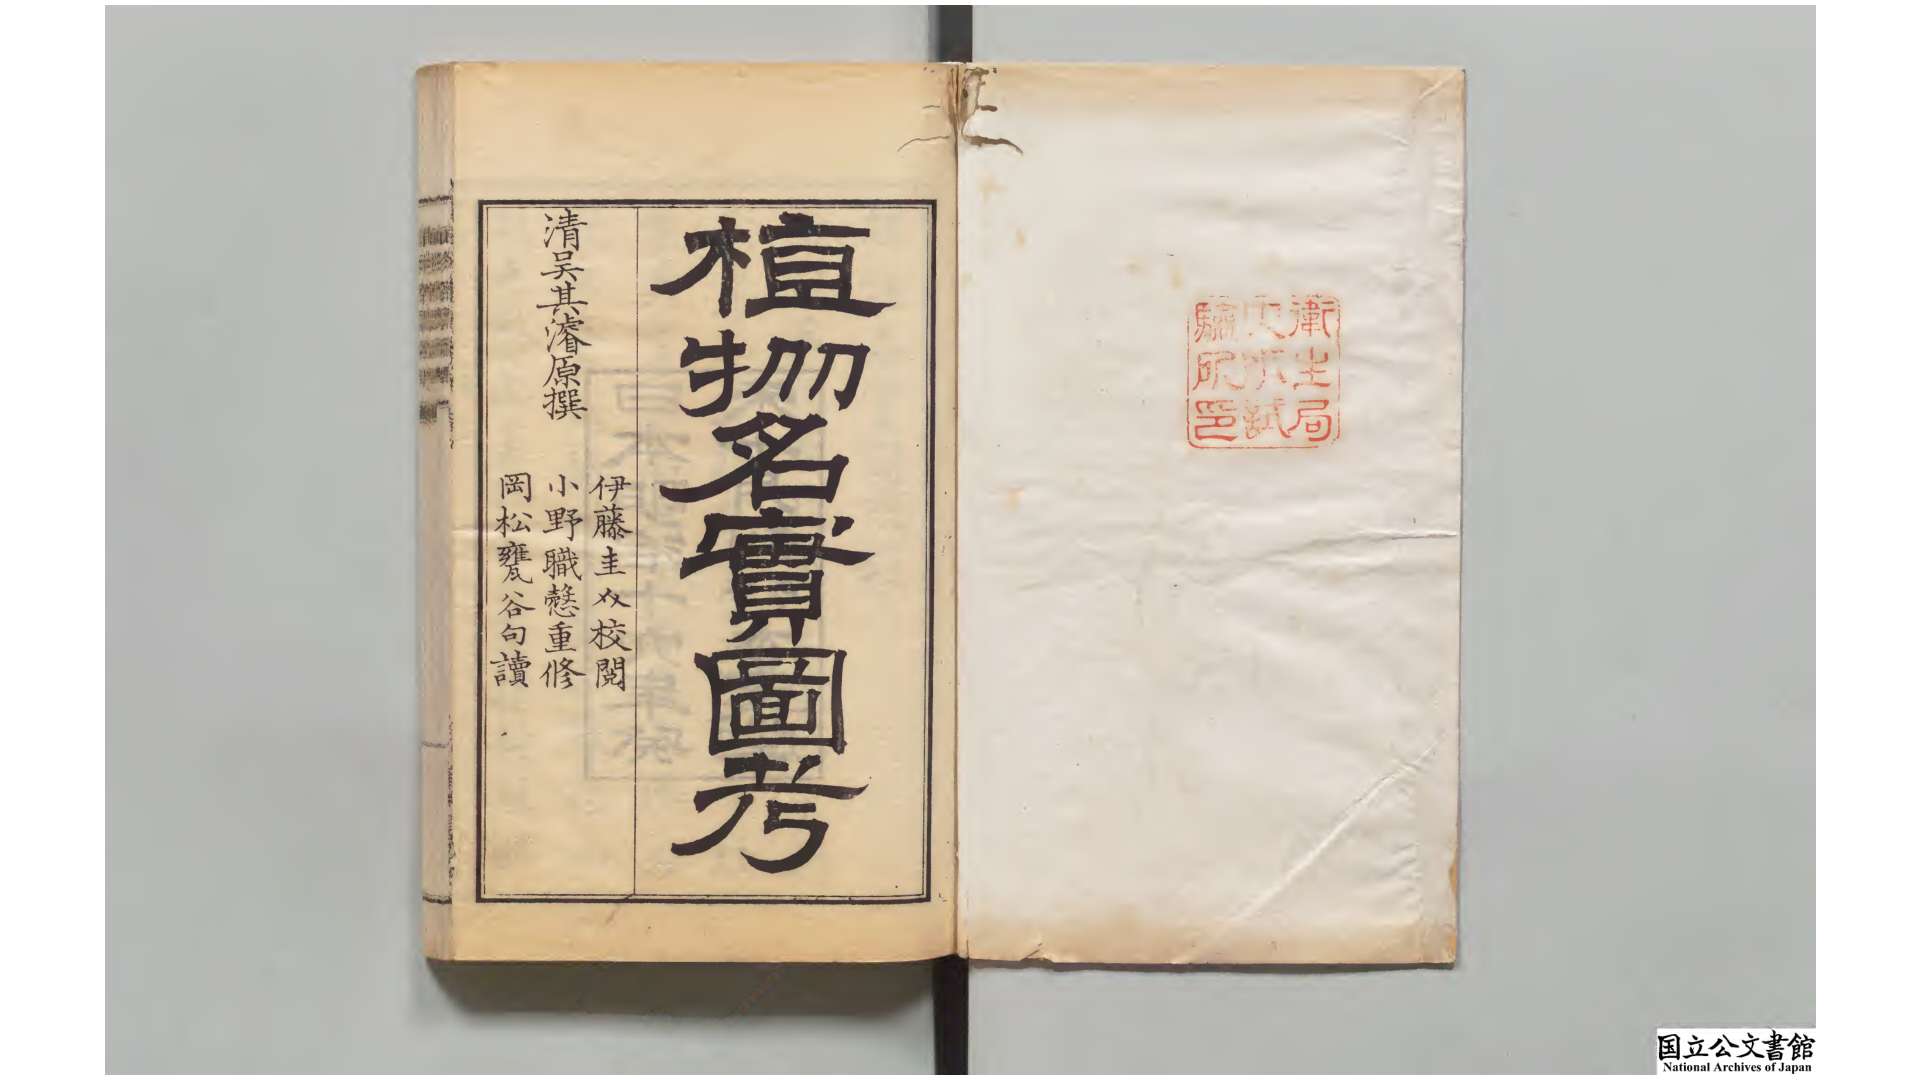 衛生局
試
驗所印
植物名實圖考
清吳其濬原撰
伊藤圭介校閲
小野職愨重修
岡松甕谷句讀
国立公文書館
National Archives of Japan